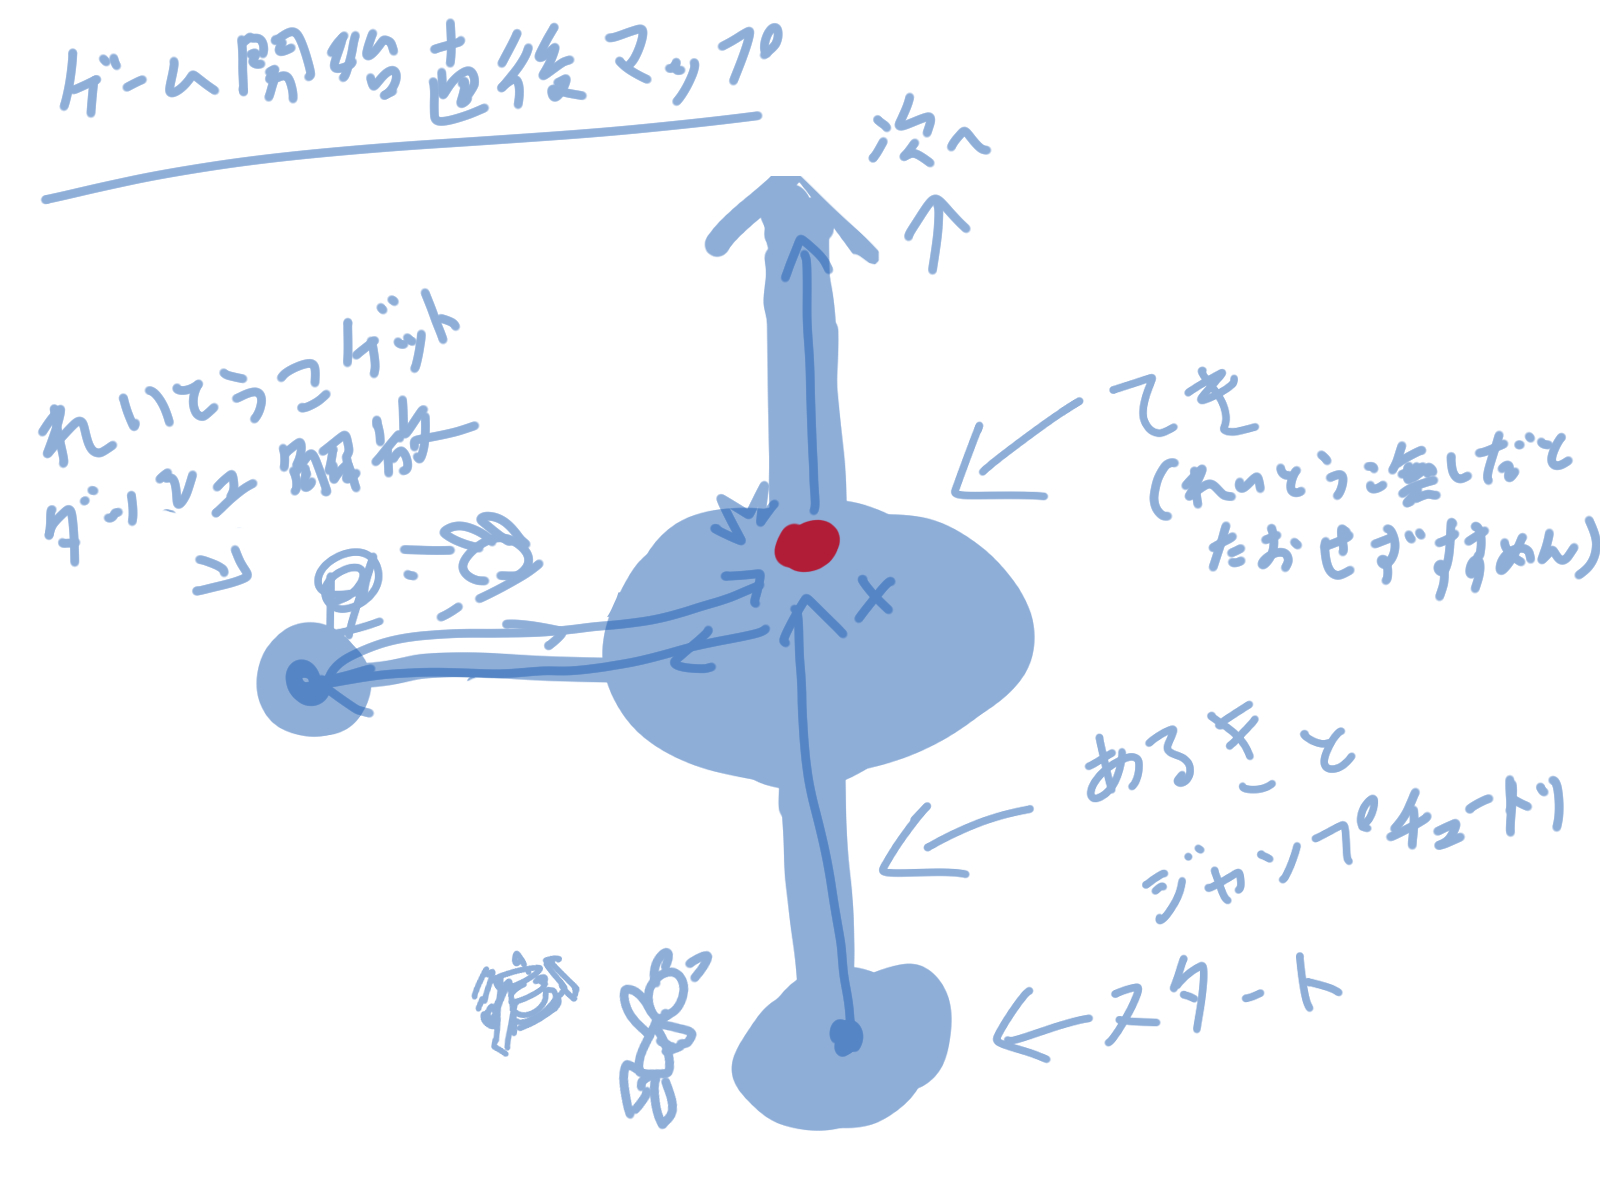 ゲーム開始直後マップ
次へ
れいとうこゲット
ダッシュ解放
てき
(れいとう無しだと
たおせずすすめん)
あるきと
ジャンプチュートリ
スタート